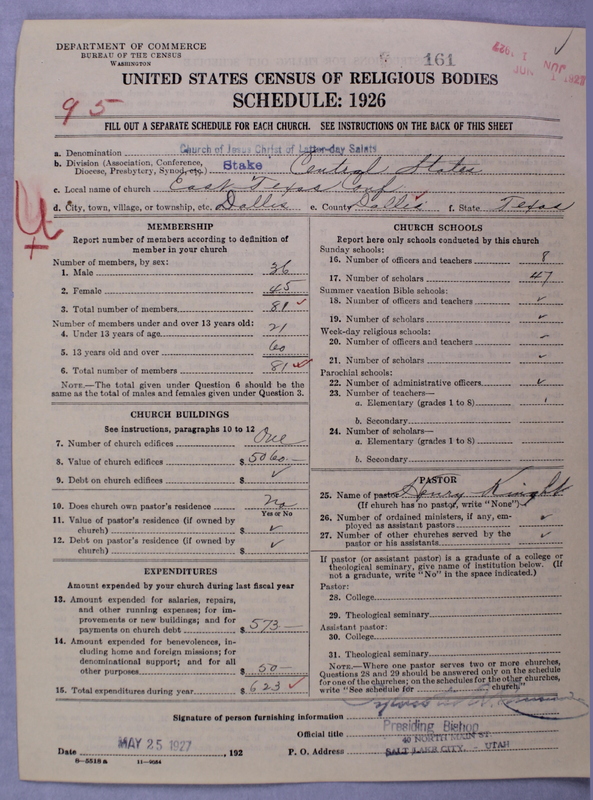 DEPARTMENT OF COMMERCE
BUREAU OF THE CENSUS
WASHINGTON
161
JUN 1927
UNITED STATES CENSUS OF RELIGIOUS BODIES
SCHEDULE: 1926
95
FILL OUT A SEPARATE SCHEDULE FOR EACH CHURCH. SEE INSTRUCTIONS ON THE BACK OF THIS SHEET
a. Denomination Church of Jesus Christ of Latter-day Saints
b. Division (Association, Conference, Diocese, Presbytery, Synod, etc.) Stake Central States
c. Local name of church East Texas Conf
d. City, town, village, or township, etc. Dallis e. County Dallis f. State Texas
MEMBERSHIP
Report number of members according to definition of member in your church
Number of members, by sex:
1. Male 36
2. Female 45
3. Total number of members 81 ✓
Number of members under and over 13 years old:
4. Under 13 years of age 21
5. 13 years old and over 60
6. Total number of members 81 ✓
NOTE.—The total given under Question 6 should be the same as the total of males and females given under Question 3.
CHURCH BUILDINGS
See instructions, paragraphs 10 to 12
7. Number of church edifices One
8. Value of church edifices $ 5060.—
9. Debt on church edifices $ ✓
10. Does church own pastor's residence? No
Yes or No
11. Value of pastor's residence (if owned by church) $ ✓
12. Debt on pastor's residence (if owned by church) $ ✓
EXPENDITURES
Amount expended by your church during last fiscal year
13. Amount expended for salaries, repairs, and other running expenses; for improvements or new buildings; and for payments on church debt $ 573—
14. Amount expended for benevolences, including home and foreign missions; for denominational support; and for all other purposes $ 50—
15. Total expenditures during year $ 623 ✓
CHURCH SCHOOLS
Report here only schools conducted by this church
Sunday schools:
16. Number of officers and teachers 8
17. Number of scholars 47
Summer vacation Bible schools:
18. Number of officers and teachers ✓
19. Number of scholars ✓
Week-day religious schools:
20. Number of officers and teachers
21. Number of scholars ✓
Parochial schools:
22. Number of administrative officers ✓
23. Number of teachers—
a. Elementary (grades 1 to 8)
b. Secondary
24. Number of scholars—
a. Elementary (grades 1 to 8)
b. Secondary
PASTOR
25. Name of pastor Henry Knight
(If church has no pastor, write "None")
26. Number of ordained ministers, if any, employed as assistant pastors ✓
27. Number of other churches served by the pastor or his assistants ✓
If pastor (or assistant pastor) is a graduate of a college or theological seminary, give name of institution below. (If not a graduate, write "No" in the space indicated.)
Pastor:
28. College
29. Theological seminary
Assistant pastor:
30. College
31. Theological seminary
NOTE.—Where one pastor serves two or more churches, Questions 28 and 29 should be answered only on the schedule for one of the churches; on the schedules for the other churches, write "See schedule for church."
Signature of person furnishing information
Official title Presiding Bishop
40 NORTH MAIN ST.
Date MAY 25 1927 , 192 P. O. Address SALT LAKE CITY, - UTAH
8—5518a 11—9084